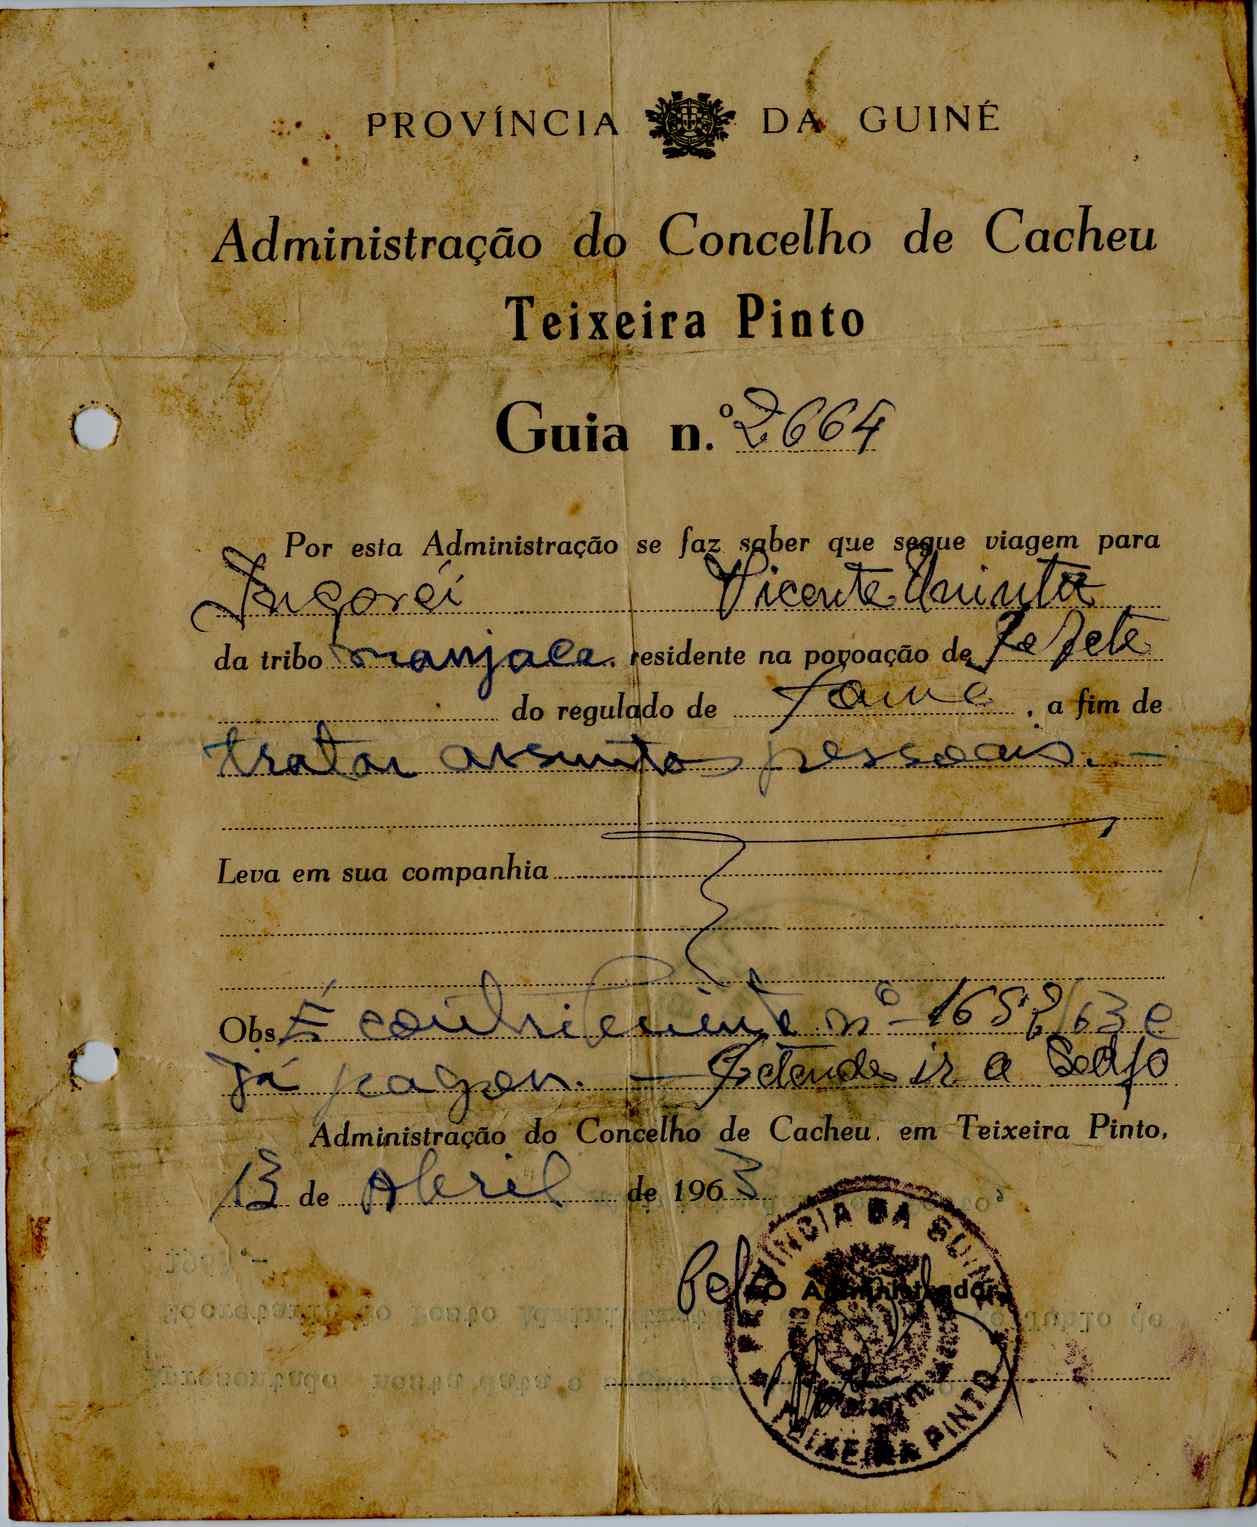 PROVÍNCIA DA GUINÉ
Administração do Concelho de Cacheu
Teixeira Pinto
Guia n.º 2664
Por esta Administração se faz saber que segue viagem para
Ingoréi Vicente Quinta
da tribo manjaca. residente na povoação de Pepete
do regulado de , a fim de
tratar assuntos pessoais. —
Leva em sua companhia
Obs. É contribuinte nº 1658/63 e
já pagou. — Pretende ir a
Administração do Concelho de Cacheu, em Teixeira Pinto,
13 de Abril de 1963
Pel O Administrador,
PROVÍNCIA DA GUINÉ
TEIXEIRA PINTO